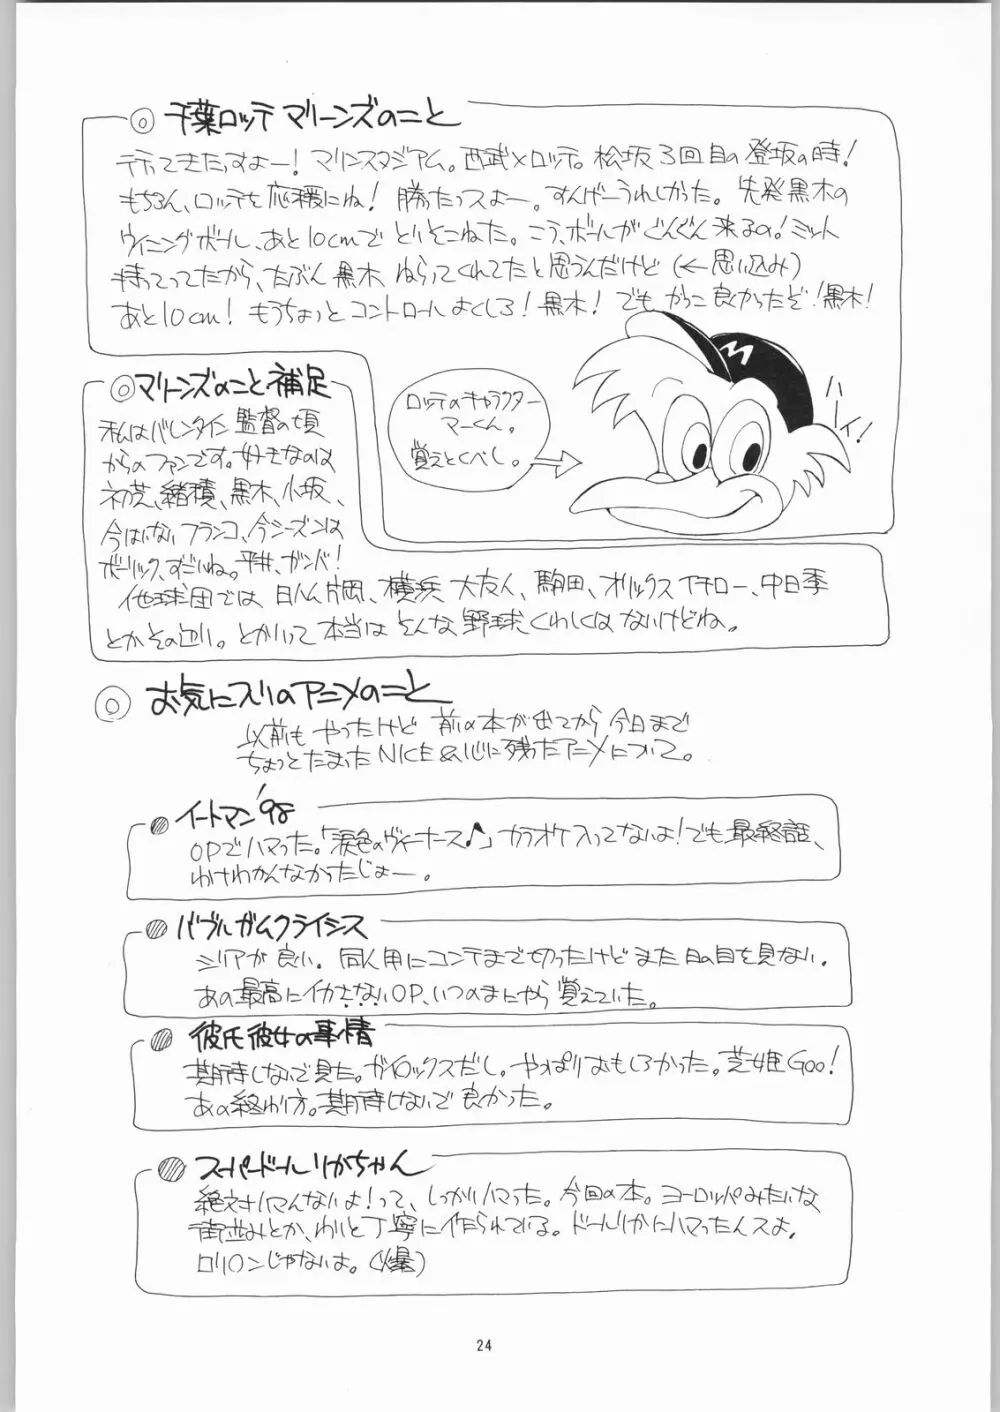 ◎ 千葉ロッテマリーンズのこと
行ってきたっすよー！マリンスタジアム。西武×ロッテ。松坂3回目の登坂の時！
もちろん、ロッテを応援にね！勝たっスよー。すんげーうれしかった。先発黒木の
ウイニングボール、あと10cmでとりそこねた。こう、ボールがぐんぐん来るの！ミット
持ってってたから、たぶん黒木ねらってくれてたと思うんだけど（←思い込み）
あと10cm！もうちょっとコントロールよくしろ！黒木！でもかっこ良かったぞ！黒木！
ロッテのキャラクター
マーくん。
覚えとくべし。
ハーイ！
◎マリーンズのこと補足
私はバレンタイン監督の頃
からのファンです。好きなのは
初芝、緒積、黒木、小坂、
今はいないフランコ、今シーズンは
ボーリック、すごいね。平井、ガンバ！
他球団では日ハム片岡、横浜大友人、駒田、オリックスイチロー、中日季
とかその辺り。とかいって本当はそんな野球くわしくはないけどね。
◎ お気に入りのアニメのこと
以前もやったけど前の本が出てから今日まで
ちょっとたまったNICE&心に残ったアニメについて。
イートマン'98
OPでハマった。「涙色のヴィーナース♪」カラオケ入ってないよ！でも最終話、
わけわかんなかったじょー。
バブルガムクライシス
シリアが良い。同人用にコンテまで切ったけどまた日の目を見ない。
あの最高にイカさないOP、いつのまにやら覚えていた。
彼氏彼女の事情
期待しないで見た。ガイロックスだし。やっぱりおもしろかった。芝姫Goo！
あの終わり方。期待しないで良かった。
スーパードールリカちゃん
絶対ハマんないよ！って、しっかりハマった。今回の本。ヨーロッパみたいな
街並みとか、わりと丁寧に作られている。ドールリカにハマったんスよ。
ロリロンじゃないよ。（爆）
24